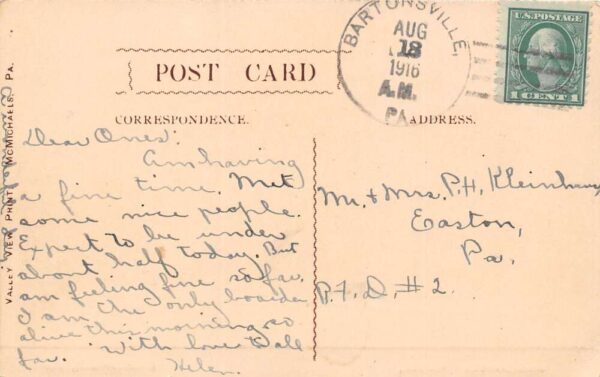 BARTONSVILLE,
AUG
18
1916
A.M.
PA.
U.S. POSTAGE
1 CENT 1
POST CARD
CORRESPONDENCE.
ADDRESS.
VALLEY VIEW PRINT, McMICHAELS, PA.
Dear Ones:
Am having
a fine time. Met
some nice people.
Expect to be under
about half today. But
am feeling fine so far.
I am the only boarder
alive this morning so
far. With love to all
Helen.
Mr. + Mrs. P. H. Kleinhans
Easton,
Pa.
R. F. D. #2.